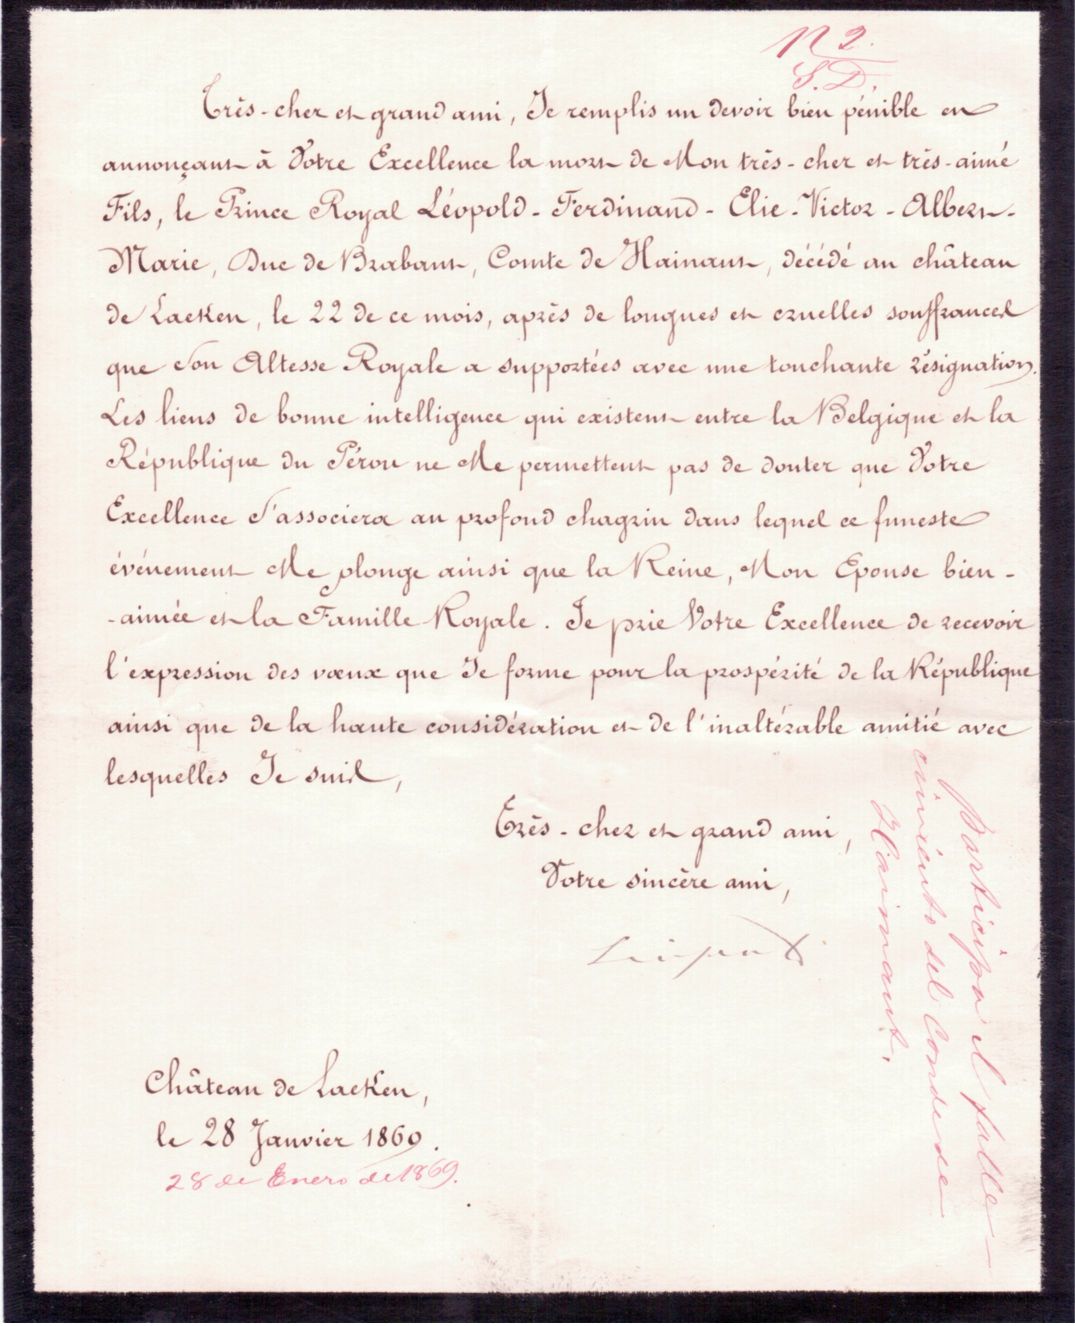 n 2.
S.D.
Très-cher et grand ami, Je remplis un devoir bien pénible en
annonçant à Votre Excellence la mort de Mon très-cher et très-aimé
Fils, le Prince Royal Léopold-Ferdinand-Elie-Victor-Albert-
Marie, Duc de Brabant, Comte de Hainaut, décédé au château
de Laeken, le 22 de ce mois, après de longues et cruelles souffrances
que Son Altesse Royale a supportées avec une touchante résignation.
Les liens de bonne intelligence qui existent entre la Belgique et la
République du Pérou ne Me permettent pas de douter que Votre
Excellence S'associera au profond chagrin dans lequel ce funeste
événement Me plonge ainsi que la Reine, Mon Epouse bien-
-aimée et la Famille Royale. Je prie Votre Excellence de recevoir
l'expression des vœux que Je forme pour la prospérité de la République
ainsi que de la haute considération et de l'inaltérable amitié avec
lesquelles Je suis,
Très-cher et grand ami,
Votre sincère ami,
Léopold
Participa el falle-
cimiento del Conde de
Hainaut.
Château de Laeken,
le 28 Janvier 1869.
28 de Enero de 1869.